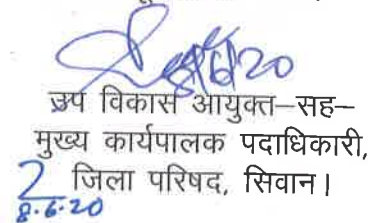 8/6/20
उप विकास आयुक्त–सह–
मुख्य कार्यपालक पदाधिकारी,
जिला परिषद, सिवान।
8.6.20